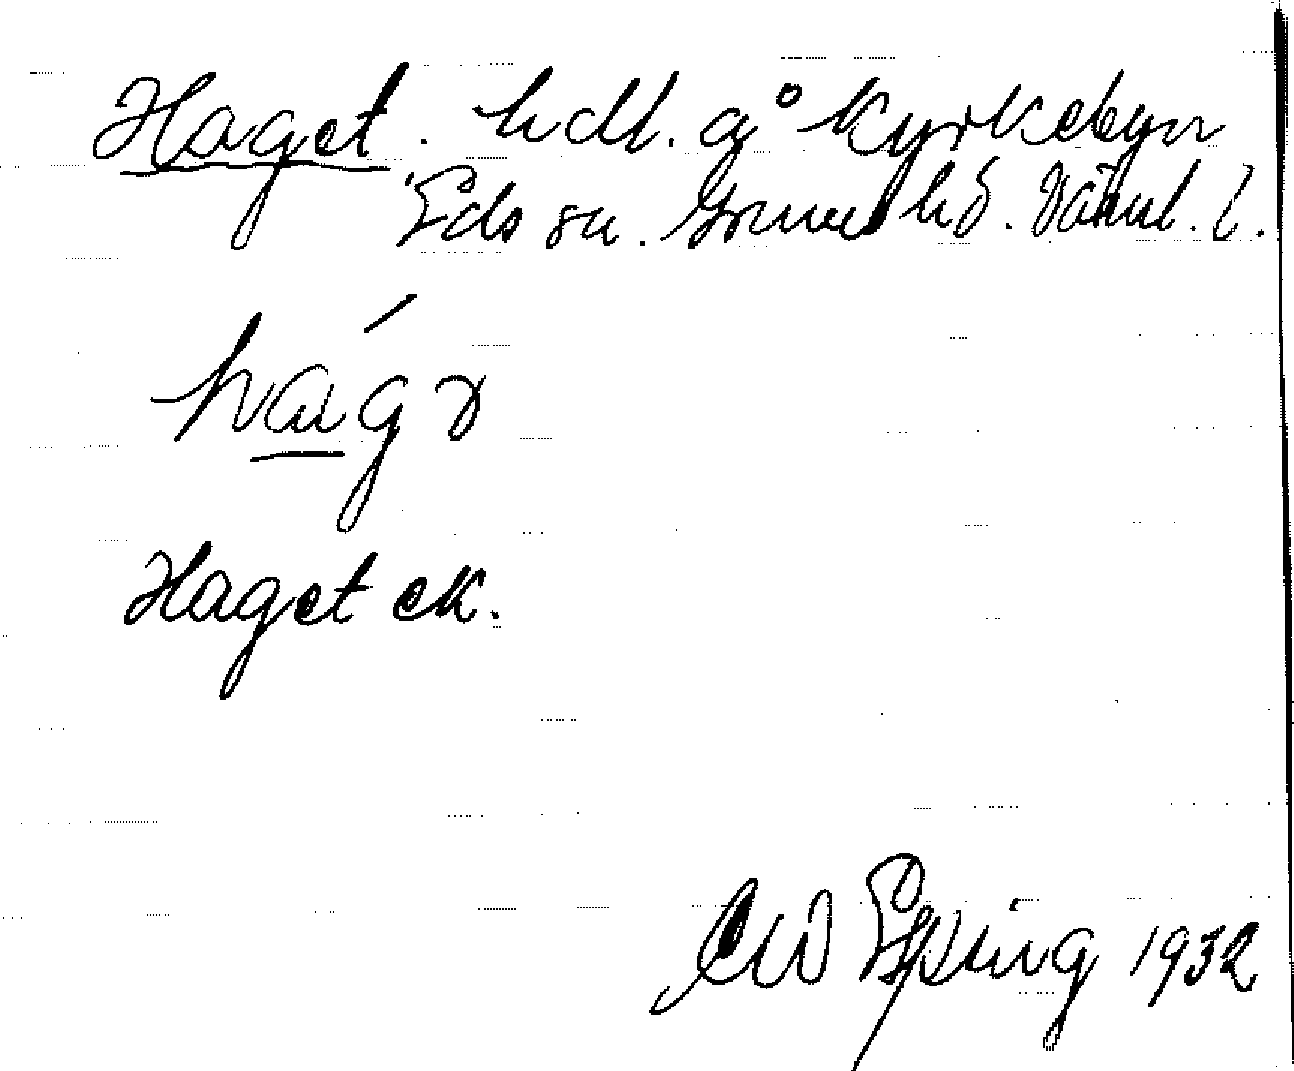 Haget. hdl. å Kyrkebyn
Eds sn. Grums hd. Värml. l.
hágɘ
Haget ek.
1932